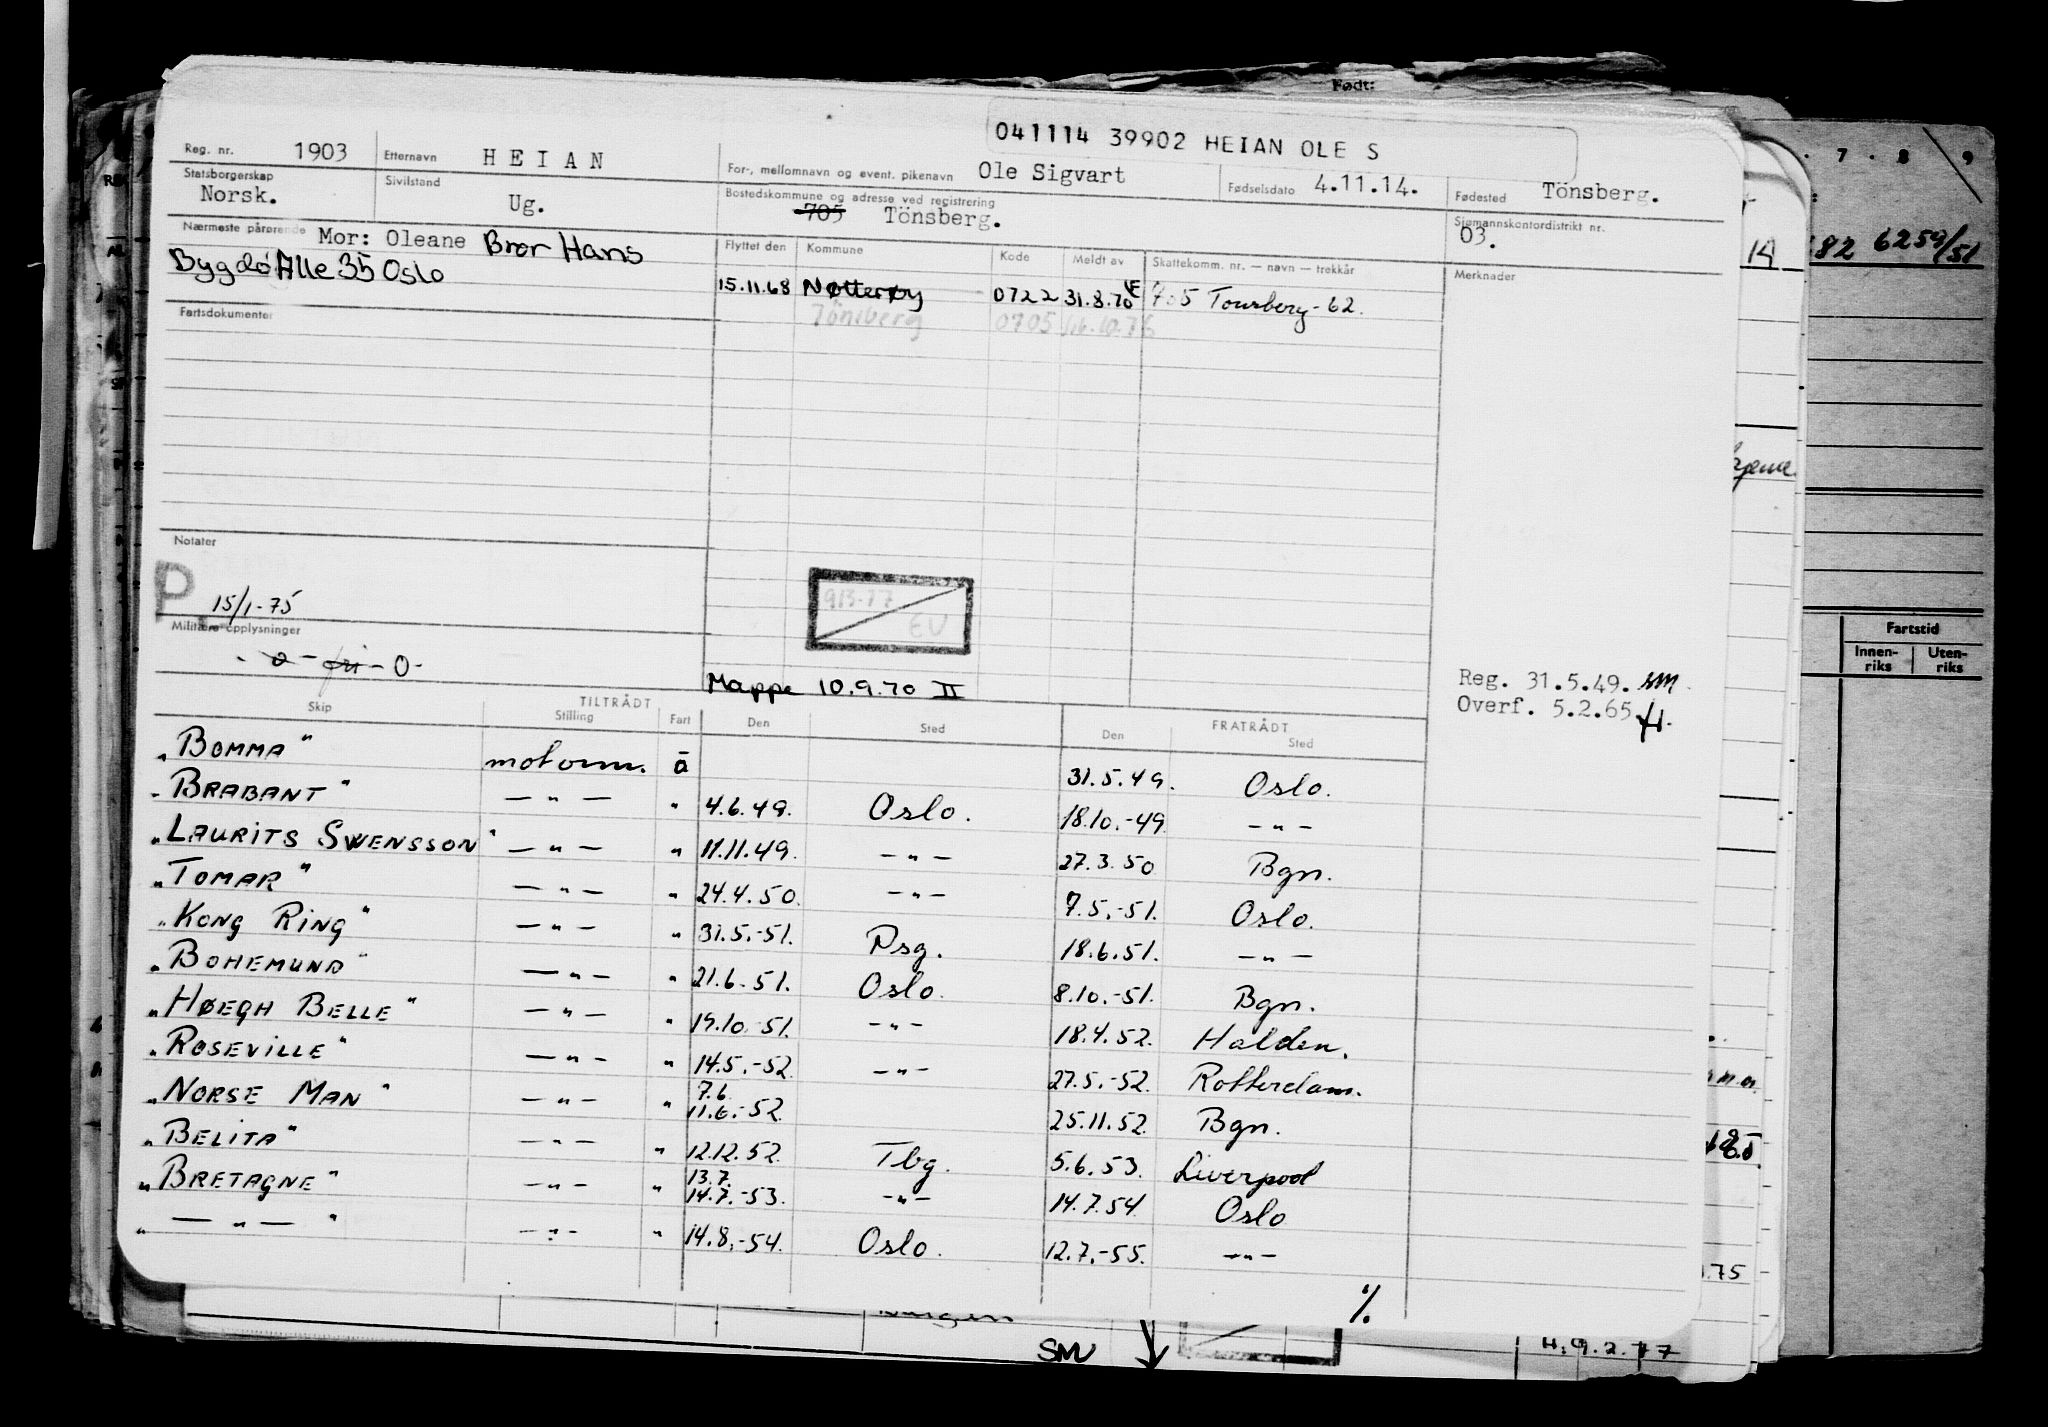 Født:
041114 39902 HEIAN OLE S
Reg. nr. 1903 Etternavn HEIAN For-, mellomnavn og event. pikenavn Ole Sigvart Fødselsdato 4.11.14. Fødested Tönsberg.
Statsborgerskap Norsk. Sivilstand Ug. Bostedskommune og adresse ved registrering 705 Tönsberg. Sjømannskontordistrikt nr. 03.
Nærmeste pårørende Mor: Oleane Bror Hans
Bygdø Alle 35 Oslo
Flyttet den Kommune Kode Meldt av Skattekomm. nr. — navn — trekkår Merknader
15.11.68 Nøtterøy 0722 31.8.70 705 Tønsberg - 62.
Tönsberg 0705
Fartsdokumenter
Notater
P 15/1-75
913-77
EU
Militære opplysninger
- 0 - fri - 0 -
Mappe 10.9.70 II
Reg. 31.5.49. SM
Overf. 5.2.65
TILTRÅDT FRATRÅDT
Skip Stilling Fart Den Sted Den Sted
"BOMMA" motorm. ā 31.5.49. Oslo.
"BRABANT" — " — " 4.6.49. Oslo. 18.10.-49 — " —
"LAURITS SWENSSON" — " — " 11.11.49. — " — 27.3.50 Bgn.
"TOMAR" — " — " 24.4.50. — " — 7.5.-51. Oslo.
"KONG RING" — " — " 31.5.-51. Psg. 18.6.51. — " —
"BOHEMUND" — " — " 21.6.51. Oslo. 8.10.-51. Bgn.
"HØEGH BELLE" — " — " 19.10.51. — " — 18.4.52. Halden.
"ROSEVILLE" — " — " 14.5.-52 — " — 27.5.-52. Rotterdam.
"NORSE MAN" — " — " 7.6. 11.6.-52. 25.11.52. Bgn.
"BELITA" — " — " 12.12.52. Tbg. 5.6.53. Liverpool
"BRETAGNE" — " — " 13.7. 14.7.-53. — " — 14.7.54. Oslo
" — " — " — " — " 14.8.-54. Oslo. 12.7.-55. — " —
%
SM
H.9.2.77
7 8 9
82 6259/51
Fartstid
Innenriks Utenriks